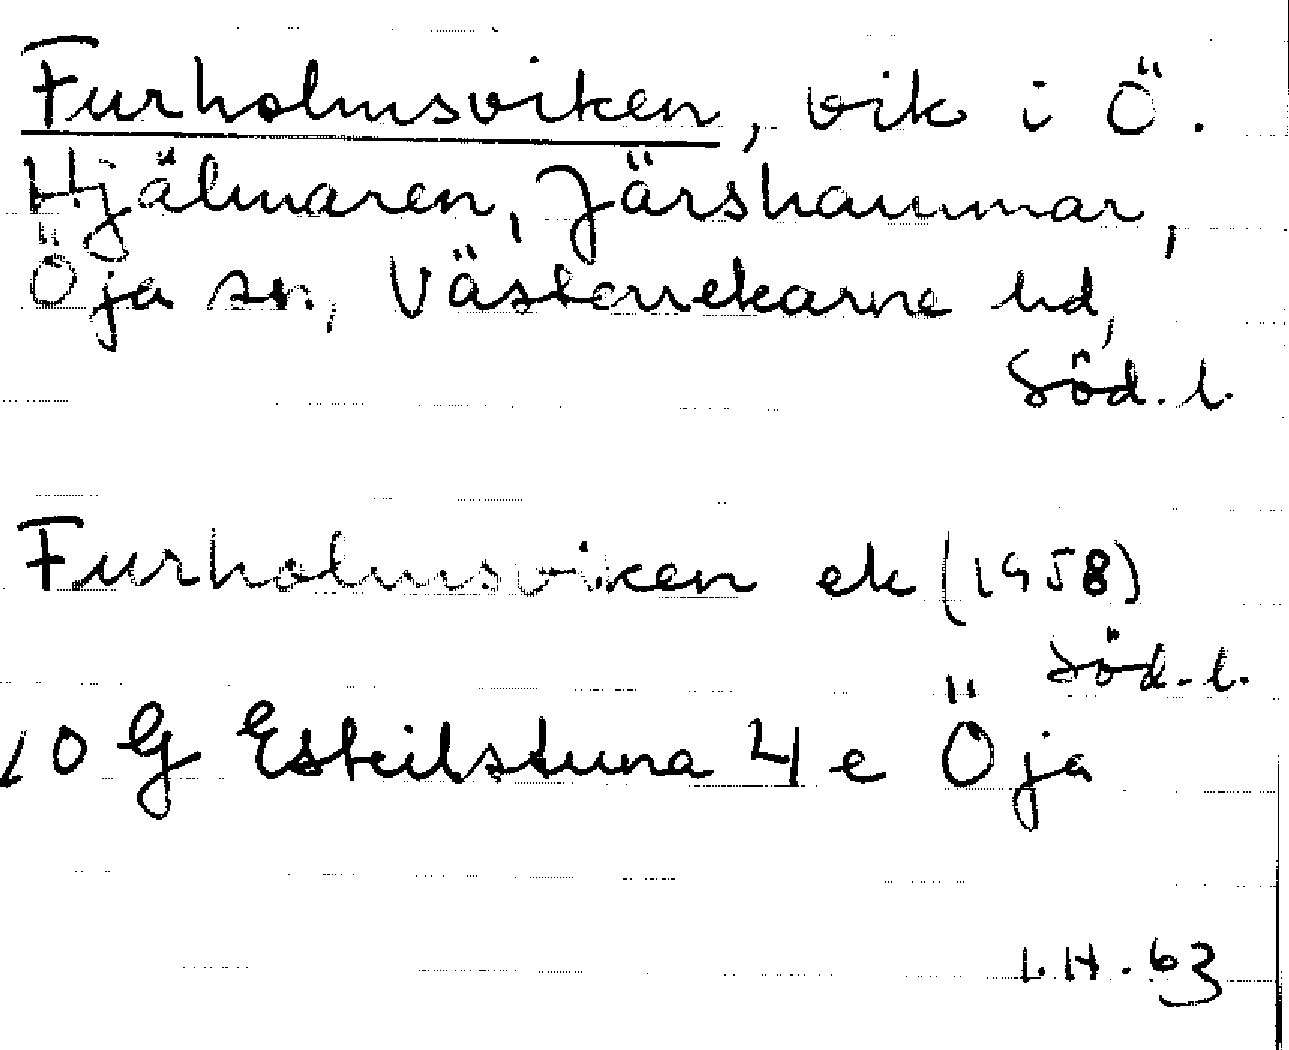 Furholmsviken, vik i Ö.
Hjälmaren, Järshammar,
Öja sn, Västerrekarne hd,
Söd. l.
Furholmsviken ek (1958)
Söd. l.
10 G Eskilstuna 4 e Öja
I. H. 63